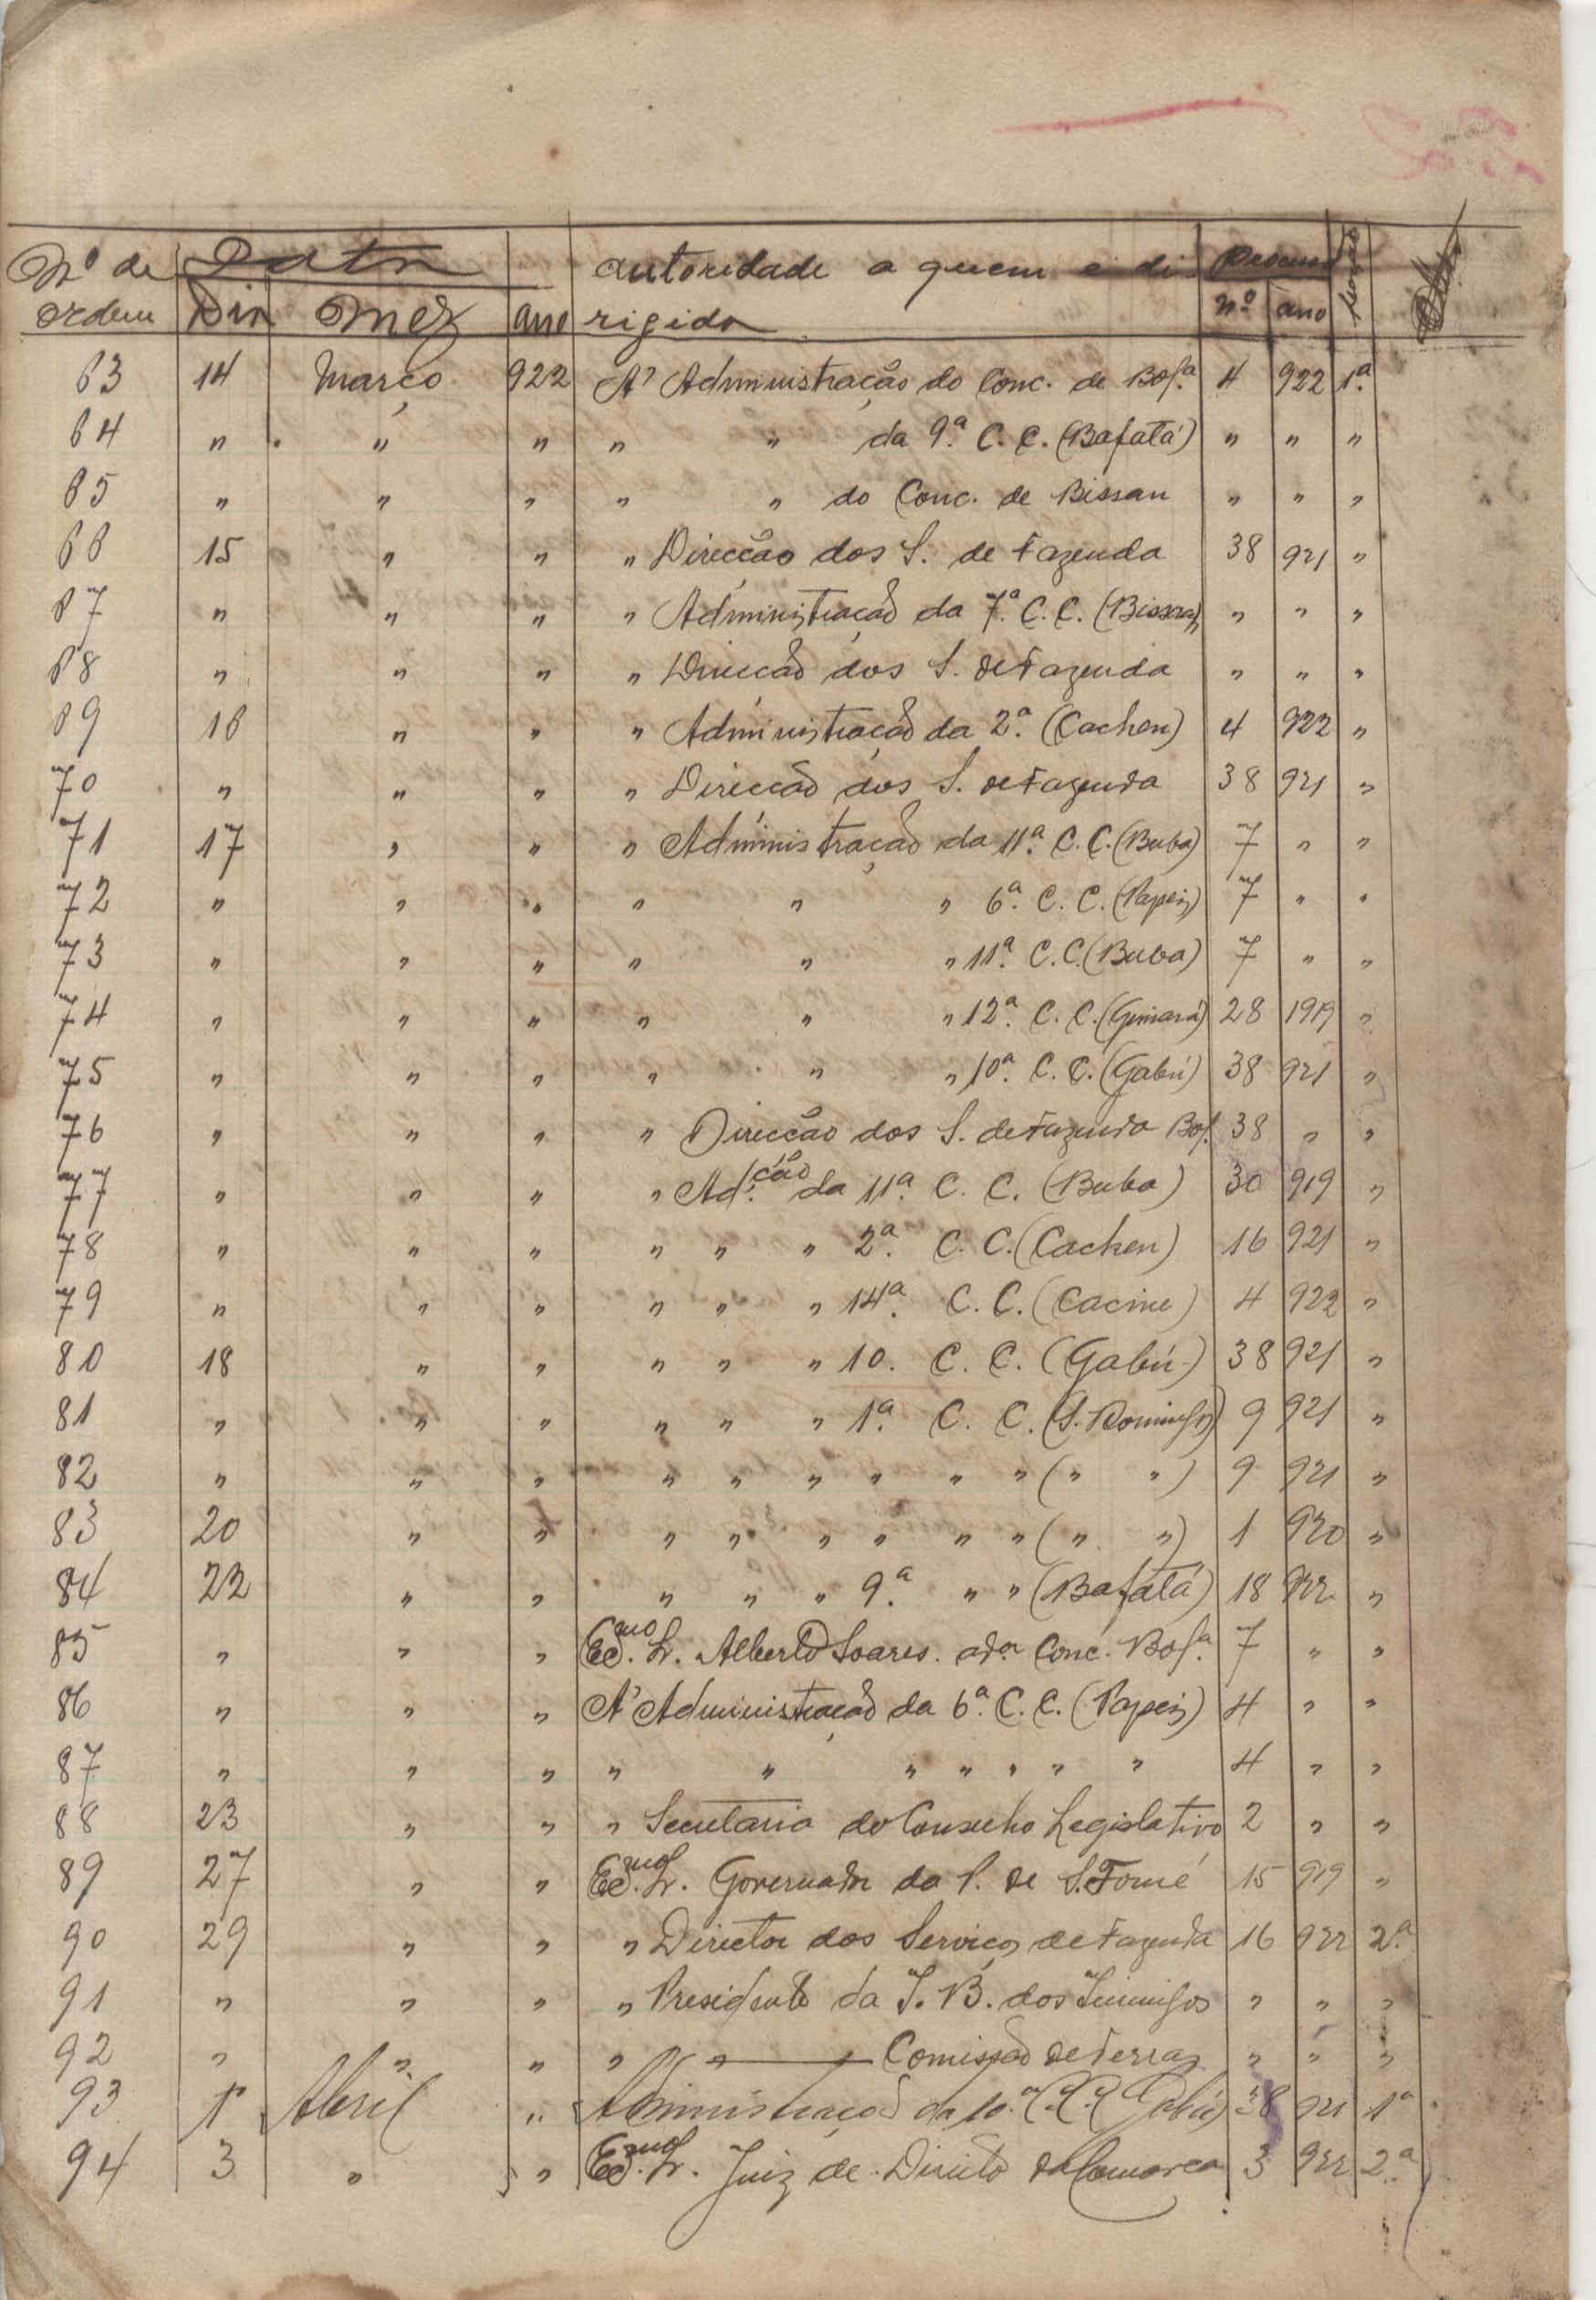 Nº de Data autoridade a quem é di Processo Secção
ordem Dia Mez ano rigida nº ano
63 14 Março 922 A' Administração do Conc. de Bol.ª 4 922 1.ª
64 " " " " " da 9.ª C. C. (Bafatá) " " "
65 " " " " " do Conc. de Bissau " " "
66 15 " " " Direcção dos S. de Fazenda 38 921 "
67 " " " " Administração da 7.ª C. C. (Bissorã) " " "
68 " " " " Direcção dos S. de Fazenda " " "
69 16 " " " Administração da 2.ª (Cacheu) 4 922 "
70 " " " " Direcção dos S. de Fazenda 38 921 "
71 17 " " " Administração da 11.ª C. C. (Buba) 7 " "
72 " " " " " " 6.ª C. C. (Papeis) 7 " "
73 " " " " " " 11.ª C. C. (Buba) 7 " "
74 " " " " " " 12.ª C. C. (Quinará) 28 1919 "
75 " " " " " " 10.ª C. C. (Gabú) 38 921 "
76 " " " " Direcção dos S. de Fazenda Bol. 38 " "
77 " " " " Ad.ção da 11.ª C. C. (Buba) 30 919 "
78 " " " " " " 2.ª C. C. (Cacheu) 16 921 "
79 " " " " " " 14.ª C. C. (Cacine) 4 922 "
80 18 " " " " " 10. C. C. (Gabú) 38 921 "
81 " " " " " " 1.ª C. C. (S. Domingos) 9 921 "
82 " " " " " " " " " (" ") 9 921 "
83 20 " " " " " " " " (" ") 1 920 "
84 22 " " " " " 9.ª " " (Bafatá) 18 922 "
85 " " " Ex.mo Sr. Alberto Soares. ad.or Conc. Bol.ª 7 " "
86 " " " A' Administração da 6.ª C. C. (Papeis) 4 " "
87 " " " " " " " " " " 4 " "
88 23 " " " Secretaria do Conselho Legislativo 2 " "
89 27 " " Ex.mo Sr. Governador da P. de S. Tomé 15 919 "
90 29 " " " Director dos Serviços de Fazenda 16 922 2.ª
91 " " " " Presidente da J. B. dos Inimigos " " "
92 " " " " " Comissão de Terras " " "
93 1 Abril " Administração da 10.ª C. C. (Gabú) 38 921 1ª
94 3 " " Ex.mo Sr. Juiz de Direito da Comarca 3 922 2.ª